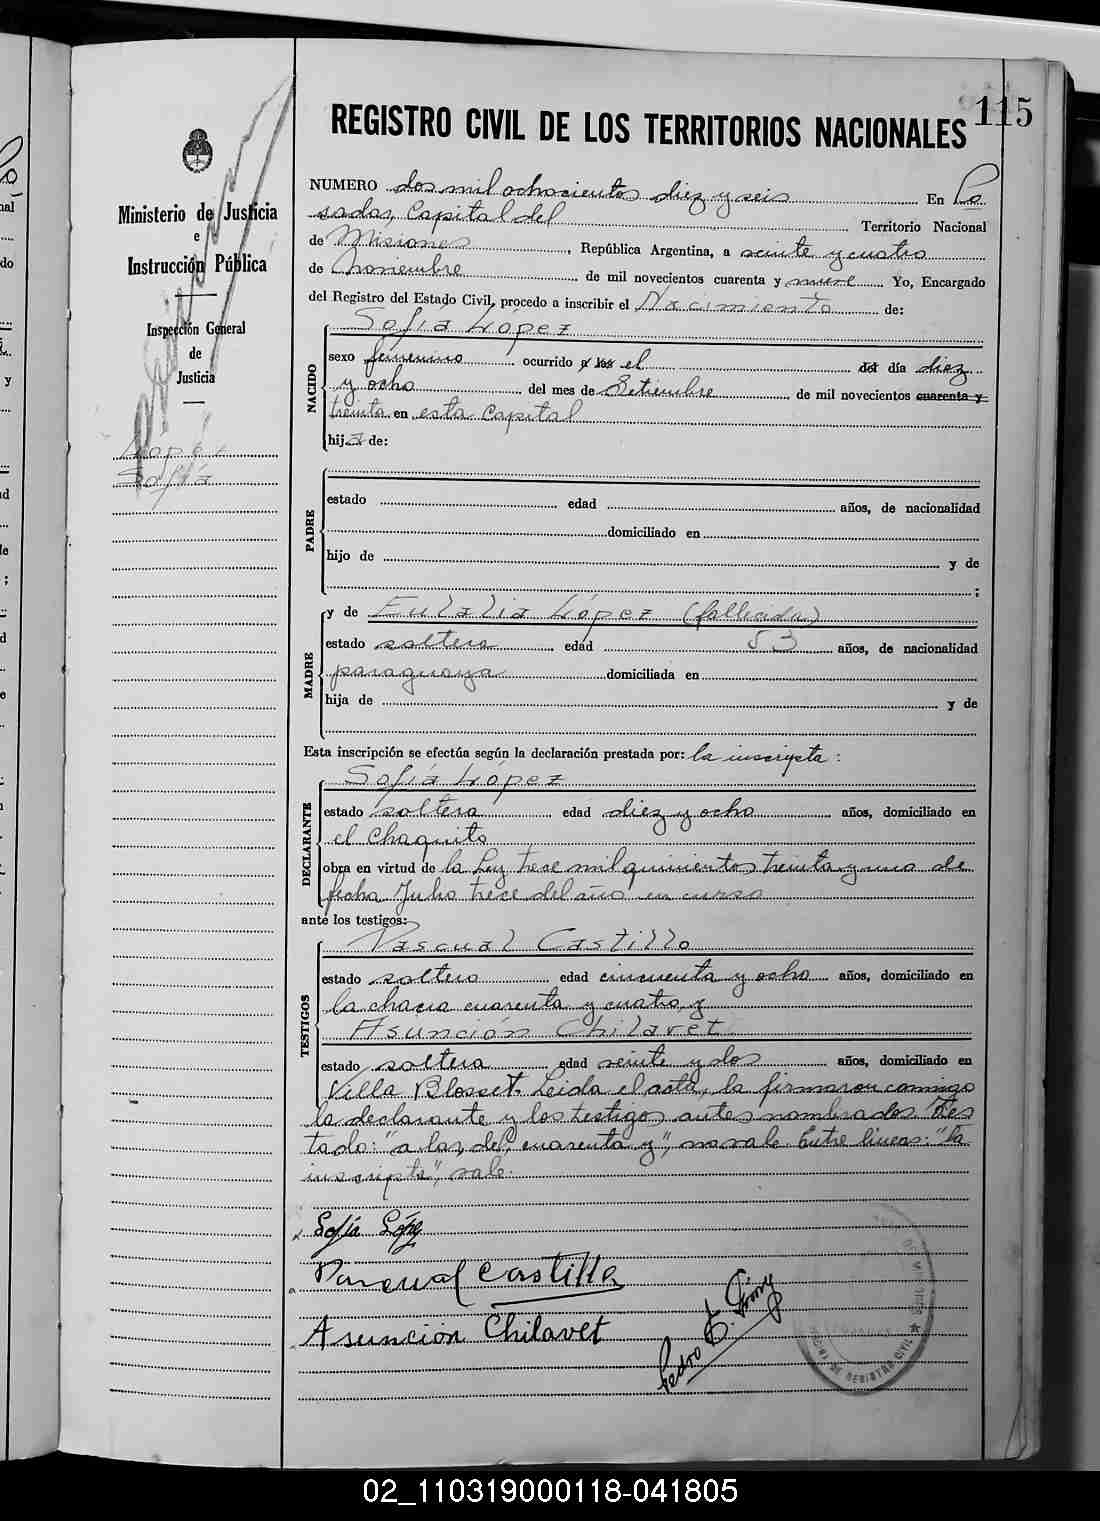 115
REGISTRO CIVIL DE LOS TERRITORIOS NACIONALES
Ministerio de Justicia
e
Instrucción Pública
Inspección General
de
Justicia
López
Sofía
NUMERO dos mil ochocientos diez y seis En Po
sadas, Capital del Territorio Nacional
de Misiones, República Argentina, a veinte y cuatro
de noviembre de mil novecientos cuarenta y nueve Yo, Encargado
del Registro del Estado Civil, procedo a inscribir el Nacimiento de:
NACIDO
Sofía López
sexo femenino ocurrido a las el del día diez
y ocho del mes de Setiembre de mil novecientos cuarenta y
treinta en esta Capital
hija de:
PADRE
estado edad años, de nacionalidad
domiciliado en
hijo de y de
;
MADRE
y de Eulalia López (fallecida)
estado soltera edad 53 años, de nacionalidad
paraguaya domiciliada en
hija de y de
Esta inscripción se efectúa según la declaración prestada por: la inscripta:
DECLARANTE
Sofía López
estado soltera edad diez y ocho años, domiciliado en
el Chaquito
obra en virtud de la Ley trece mil quinientos treinta y uno de
fecha Julio trece del año en curso
ante los testigos:
TESTIGOS
Pascual Castillo
estado soltero edad cincuenta y ocho años, domiciliado en
la chacra cuarenta y cuatro, y
Asunción Chilavet
estado soltera edad veinte y dos años, domiciliado en
Villa Blosset. Leída el acta, la firmaron conmigo
la declarante y los testigos antes nombrados. Tes
tado: "a las, del, cuarenta y", no vale. Entre líneas: "la
inscripta", vale.
Sofía López
Pascual Castillo
Asunción Chilavet
Pedro E.
DE REGISTRO CIVIL
02_110319000118-041805